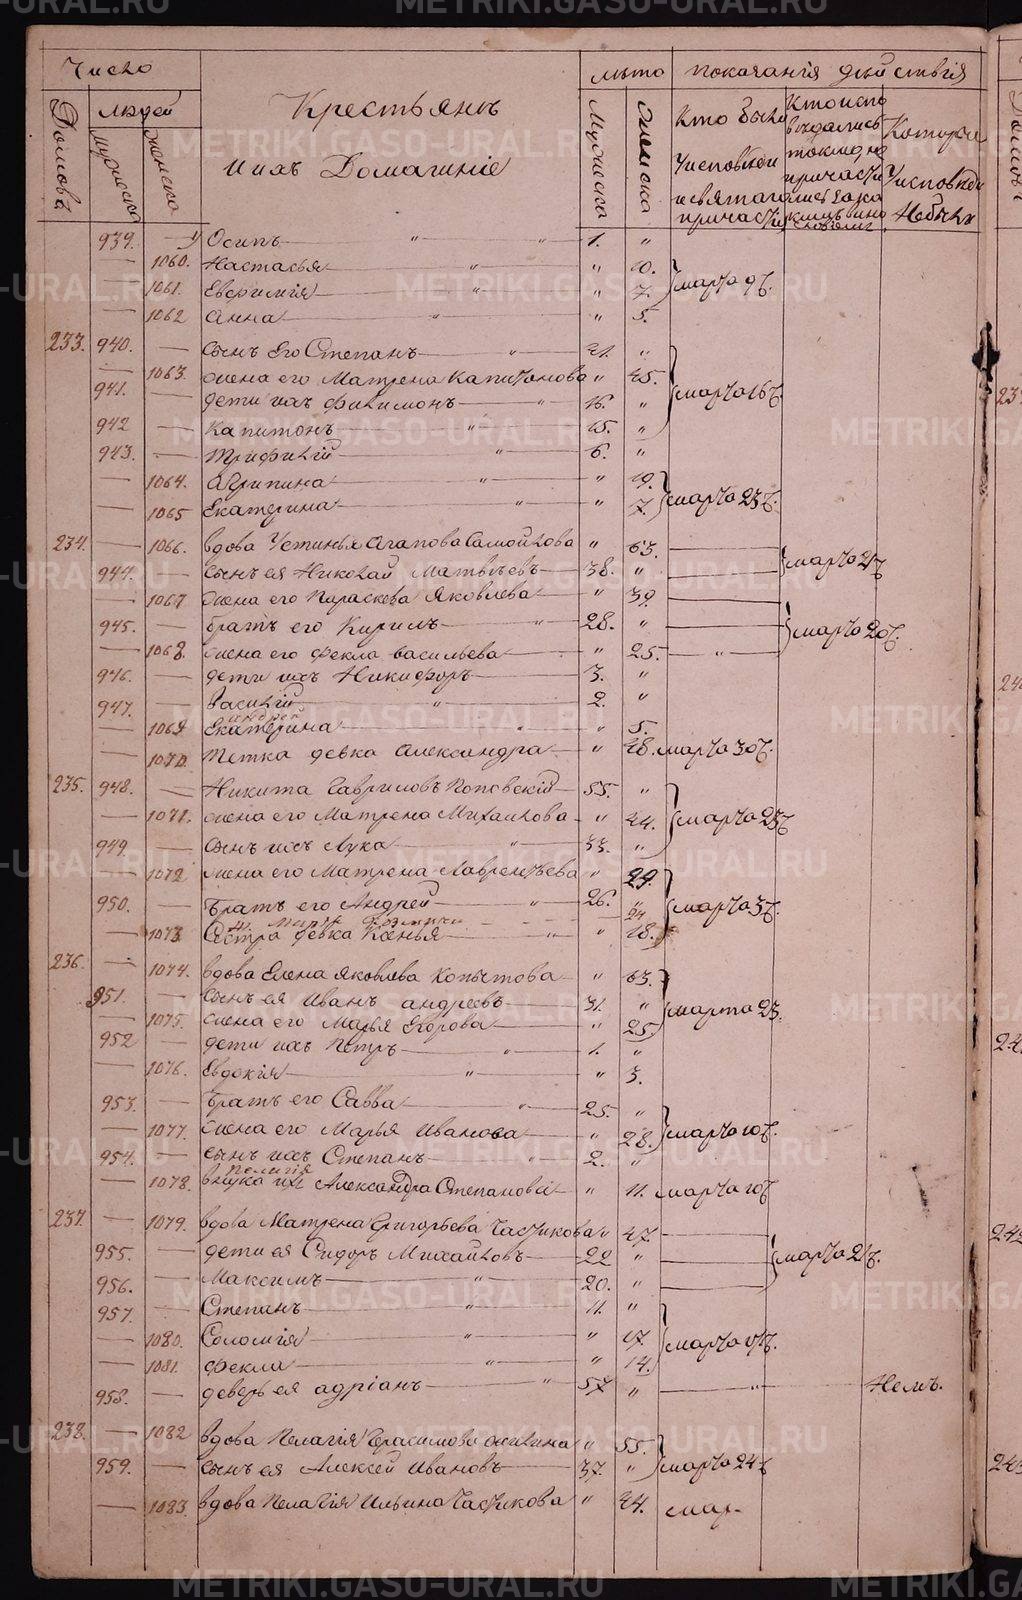 Число
лѣто показанія дѣйствія
Домовъ
людей
мужеска
женска
Крестьянъ
и ихъ Домашніе
Мужеска
Женска
Кто были
Уисповѣди
и святаго
причастія
Кто испо
вѣдались
токмо, не
причасти
лись за ка
кимъ вино
Которые
Уисповѣди
Небыли
939. Осипъ " " 1. "
1060. Настасья " " 10.
1061. Евфимія " " 7. марта 9 ч.
1062 Анна " " 5.
233. 940. сынъ Его Степанъ " 41. "
1063. жена его Матрена Капитонова " 45.
941. дети ихъ Филимонъ " 16. " марта 16 ч.
942 Капитонъ " 15. "
943. Трифилій " 6. "
1064. Агрипина " " 19.
1065 Екатерина " " 7. марта 23 ч.
234. 1066. вдова Устинья Агапова Самойлова " 63.
944. сынъ ея Николай Матвѣевъ 38. " марта 21 ч.
1067 жена его Параскева Яковлева " 39.
945. братъ его Кирилъ " 28. " марта 20 ч.
1068. жена его Фекла Васильева " 25. "
946. дети ихъ Никифоръ 3. "
947. Василій " 2. "
1069 Екатерина " " 5.
1070. Тетка девка Александра " 48. марта 30 ч.
235. 948. Никита Гавриловъ Поповскій 55. "
1071. жена его Матрена Михайлова " 44. марта 23 ч.
949. сынъ ихъ Лука " 33. "
1072 жена его Матрена Лаврентьева " 29.
950. братъ его Андрей " 26. " марта 3 ч.
24
1073. Сестра девка Ксенья " " 18.
236. 1074. вдова Елена Яковлева Копытова " 63.
951. сынъ ея Иванъ Андреевъ 31. " марта 23.
1075. жена его Марья Егорова " 25.
952 дети ихъ Петръ " 1. "
1076. Евдокія " " 3.
953. братъ его Савва " 25. "
1077. жена его Марья Иванова " 28. марта 10 ч.
954. сынъ ихъ Степанъ " 2. "
Пелагія
1078. внука их Александра Степановы " 11. марта 10 ч
237. 1079. вдова Матрена Григорьева Частикова " 47.
955. дети ея Сидоръ Михайловъ 22 " марта 21 ч.
956. Максимъ " 20. "
957. Степанъ " 11. "
1080. Соломія " " 17. марта 17 ч.
1081. Фекла " " 14.
958. деверь ея Адріанъ " 57 " " Немъ.
238. 1082 вдова Пелагія Герасимова " 55.
959. сынъ ея Алексей Ивановъ 37. " марта 24 ч
1083. вдова Пелагія Ильина Частикова " 44. мар.
METRIKI.GASO-URAL.RU